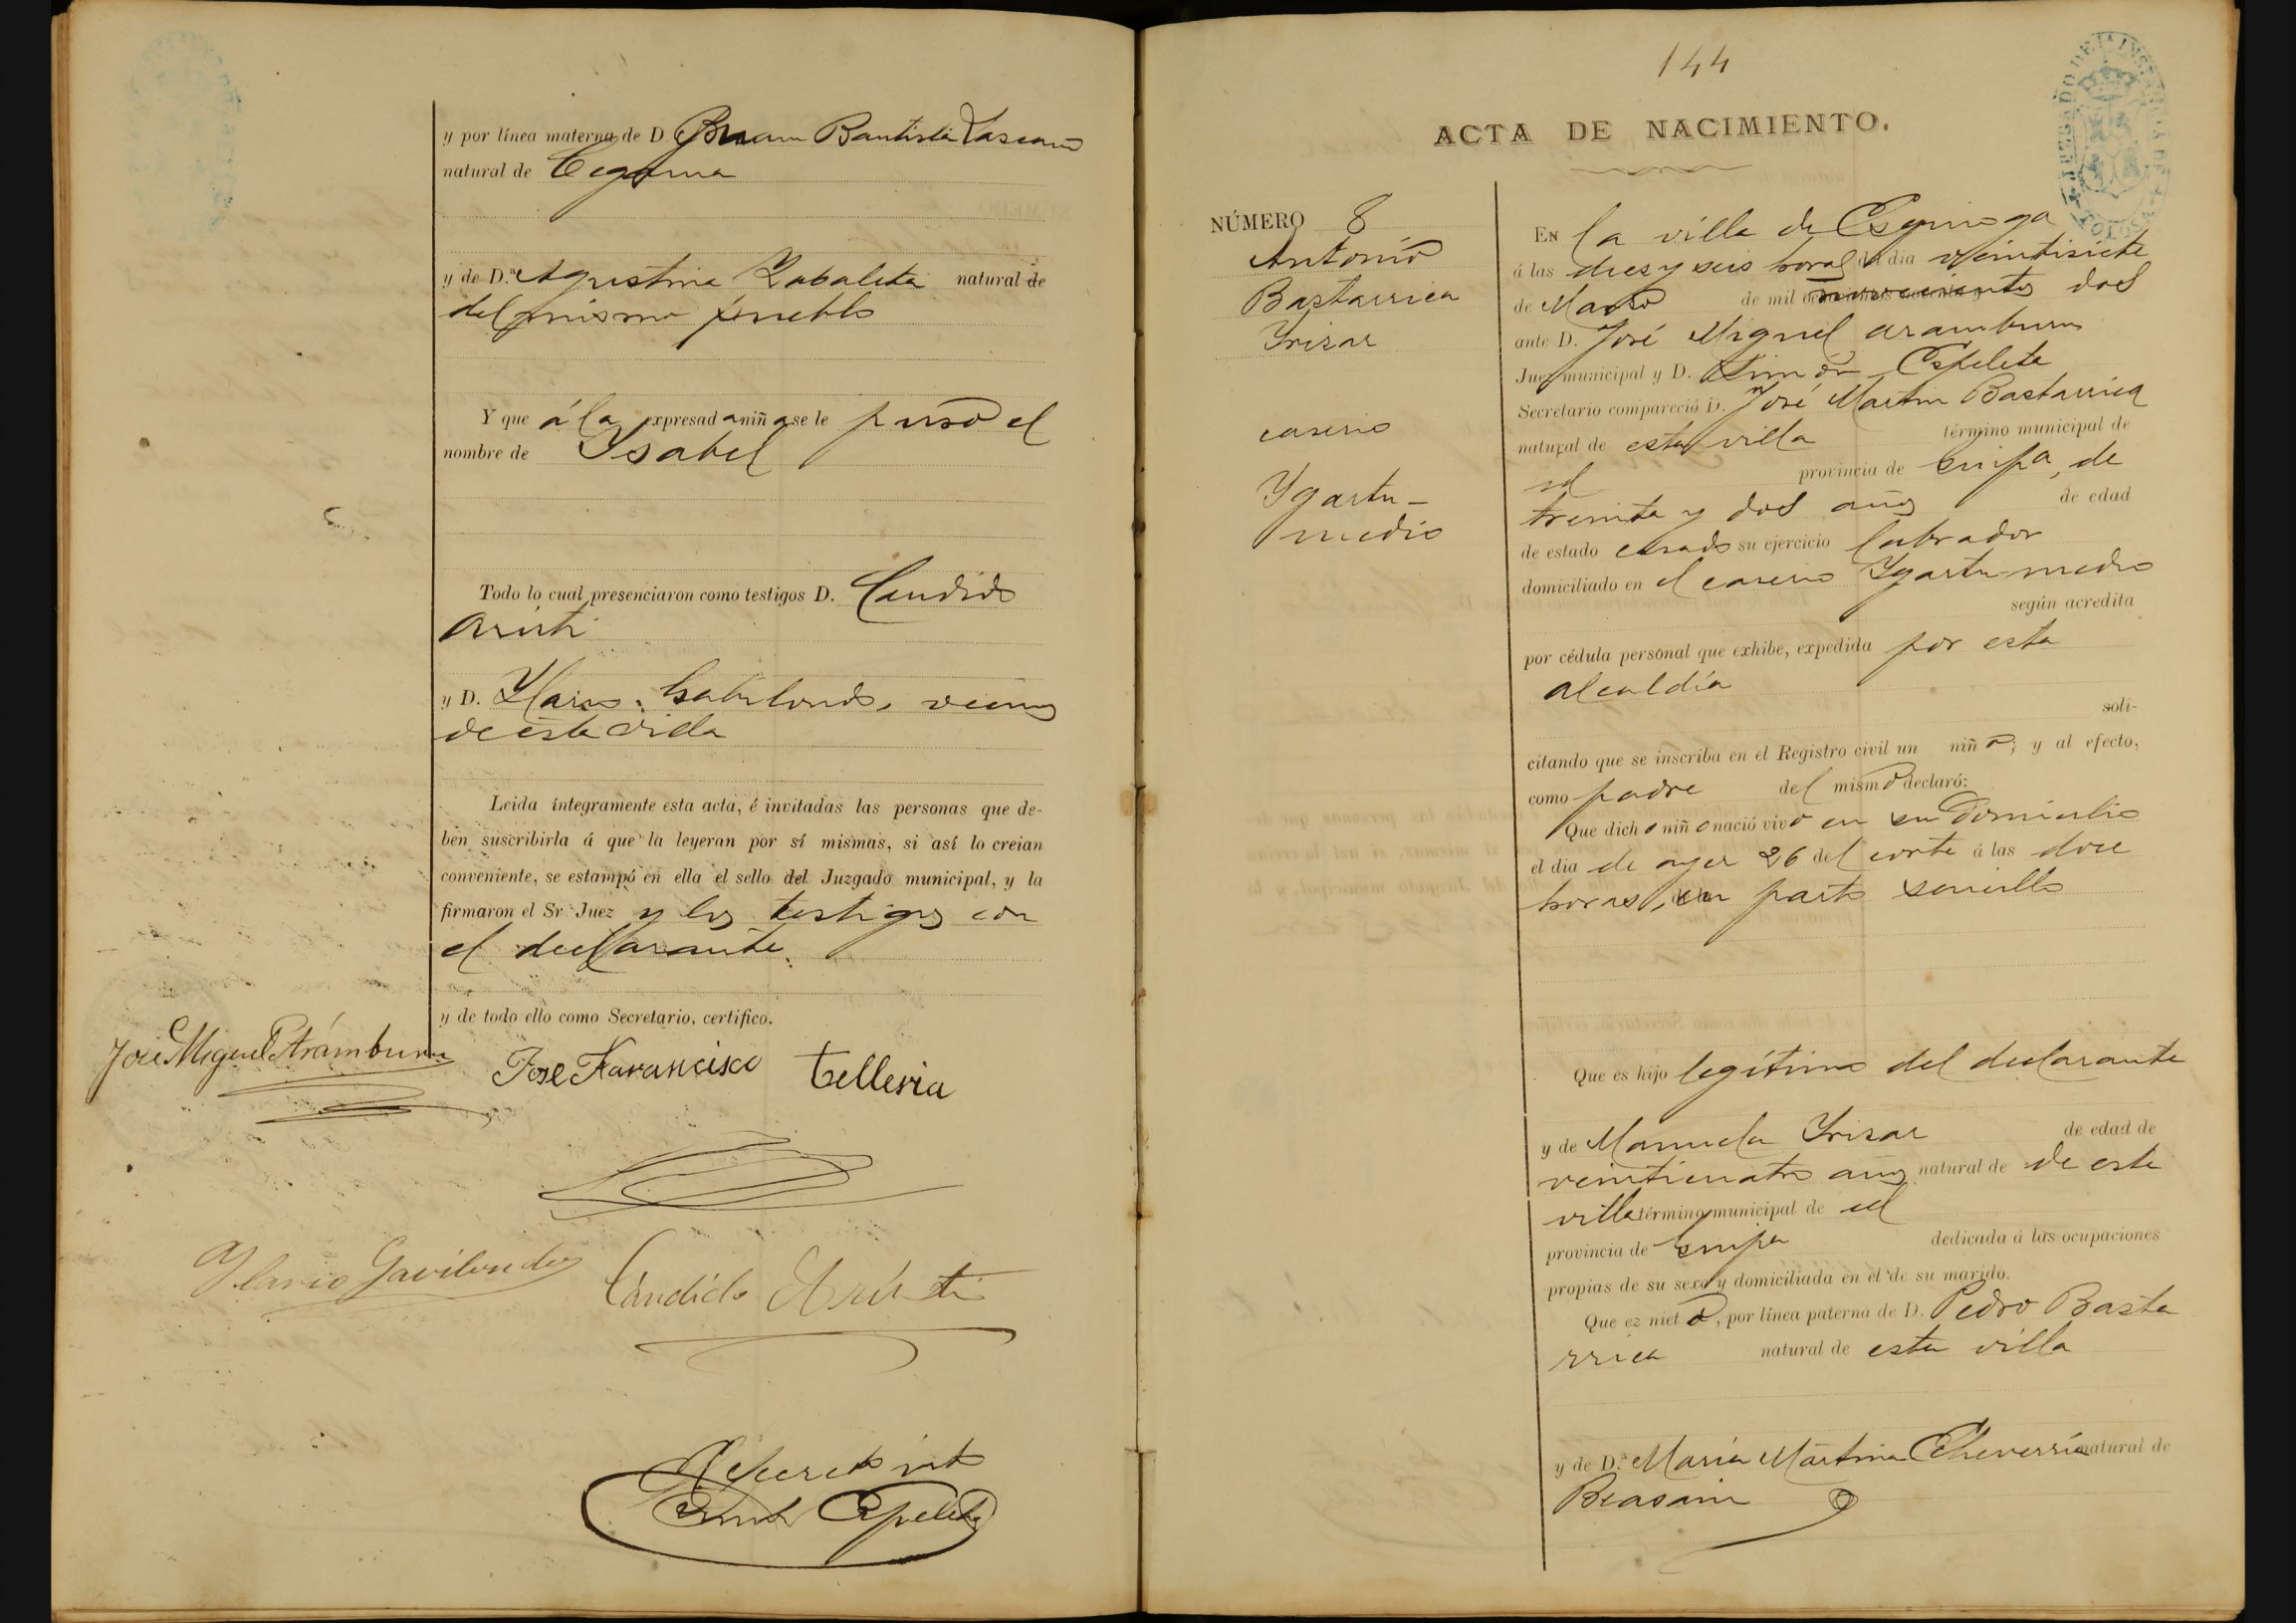 y por línea materna de D Juan Bautista Lascano
natural de Cegama
y de D.ª Agustina Zabaleta natural de
del mismo pueblo
Y que á la expresad a niñ a se le puso el
nombre de Ysabel
Todo lo cual presenciaron como testigos D. Candido
Arústi
y D. Ylario Gabilondo, vecinos
de esta villa
Leida íntegramente esta acta, é invitadas las personas que de-
ben suscribirla á que la leyeran por sí mismas, si así lo creian
conveniente, se estampó en ella el sello del Juzgado municipal, y la
firmaron el Sr Juez y los testigos con
el declarante.
y de todo ello como Secretario, certifico.
José Miguel Arámburu
Jose Fravancisco Telleria
Ylario Gavilondo
Cándido Arústi
El Secretario
Simón Espelete
144
ACTA DE NACIMIENTO.
NÚMERO 8
Antonio
Bastarrica
Yrizar
caserio
Ygartu-
medio
En la villa de Esquioga
á las diez y seis horas del dia veintisiete
de Marzo de mil novecientos dos
ante D. José Miguel Aramburu
Juez municipal y D. Simón Espelete
Secretario compareció D. José Martin Bastarrica
natural de esta villa término municipal de
id provincia de Guipa, de
treinta y dos años de edad
de estado casado su ejercicio labrador
domiciliado en el caserio Ygartu-medio
según acredita
por cédula personal que exhibe, expedida por esta
alcaldía
soli-
citando que se inscriba en el Registro civil un niñ o; y al efecto,
como padre del mism o declaró:
Que dich o niñ o nació viv o en su domicilio
el dia de ayer 26 del corte á las doce
horas, en parto sencillo
Que es hijo legítimo del declarante
y de Manuela Yrizar de edad de
veinticuatro años natural de de esta
villa término municipal de id
provincia de Guipa dedicada á las ocupaciones
propias de su sexo y domiciliada en el de su marido.
Que es niet o, por línea paterna de D. Pedro Basta
rrica natural de esta villa
y de D.ª María Martina Echeverría natural de
Beasain